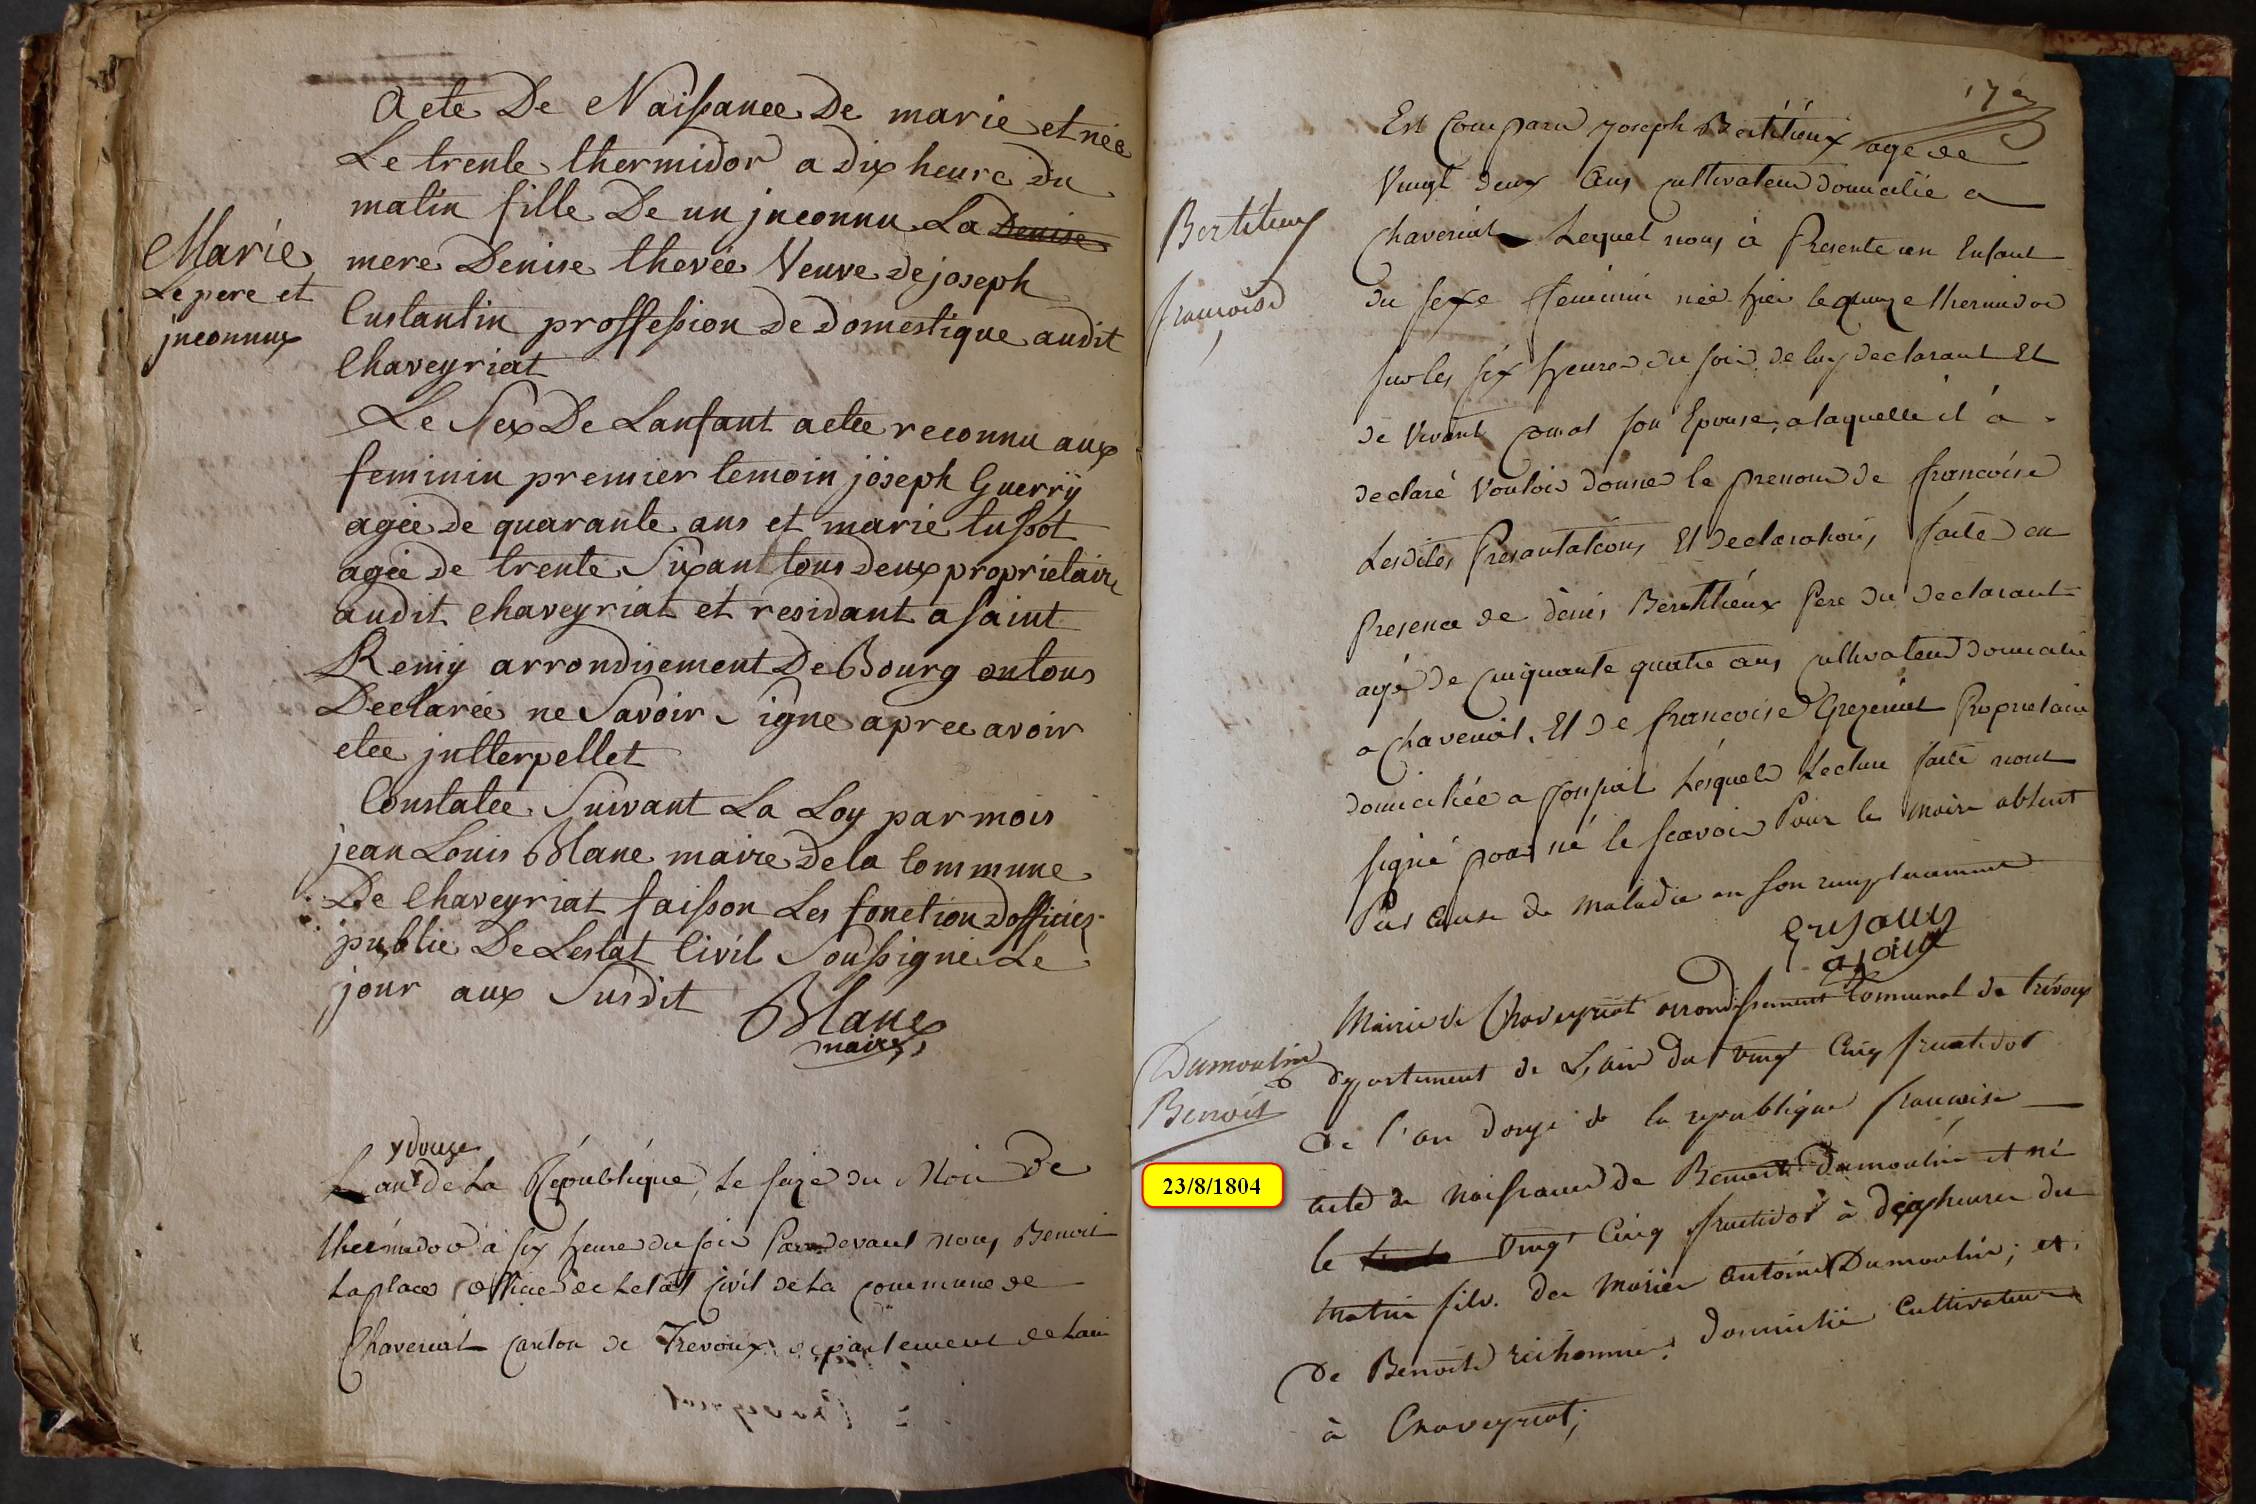 Acte De Naissance De marie et née
Le trente thermidor a dix heure du
matin fille De un jnconnu La Denise
mere Denise thevée Veuve de joseph
Custantin proffession De Domestique audit
Chaveyriat
Marie
Le pere et
jnconnux
Le Sex De Lanfant actee reconnu aux
feminin premier temoin joseph Guerry
agée de quarante ans et marie tussot
agée de trente Sixant tous Deux proprietaire
audit chaveyriat et residant a saint
Remy arrondisement De Bourg ontous
Declarée ne Savoir Signe apree avoir
etee jntterpellet
Constatee Suivant La Loy par mois
jean Louis Blanc maire De la Commune
De Chaveyriat faisson Les fonction D officier
publie De Lestat Civil Soussigne Le
jour aux Susdit
Blanc
maire
ydouze
L an de La République, le saze du Moi De
thermidor à six heure du soir Pardevant nous Benoit
Laplace officier de Letat Civil de La commune de
Chaveriat canton de Trevoux departement de Lain
17
Est Comparu joseph Bertitieux age de
Vingt deux Ans cultivateur domicilié a
Chaveriat Lequel nous à Presente un Enfant
du sexe feminin née hier le quinze thermidor
sur les six heures du soir de luy declarant Et
de Vivant son Epouse, a laquelle il à
declaré Vouloir donner le prenom de francoise
Lesdites Presantations Et declarations faite en
Presence de dénis Bertitieux Pere du declarant
agé de Cinquante quatre ans cultivateur domicilié
a Chaveriat. Et de francoise Proprietaire
domiciliée a Lesquels Lecture faite nont
signé pour né le scavoir Pour le maire absent
Par Cause de maladie en son remplacement
ajoint
Bertitieux
francoise
Mairie de Chaveyriat arrondissement Communal de trévoux
departement de L'ain du vingt Cinq fructidor
de l'an douze de la republique francoise
acte de Naissance de Benoit Dumoulin et né
le vingt Cinq fructidor à dix heures du
matin fils de Marier antoine Dumoulin, et
De Benoite richomme, domicilié Cultivateur
à Chaveyriat;
Dumoulin
Benoit
23/8/1804